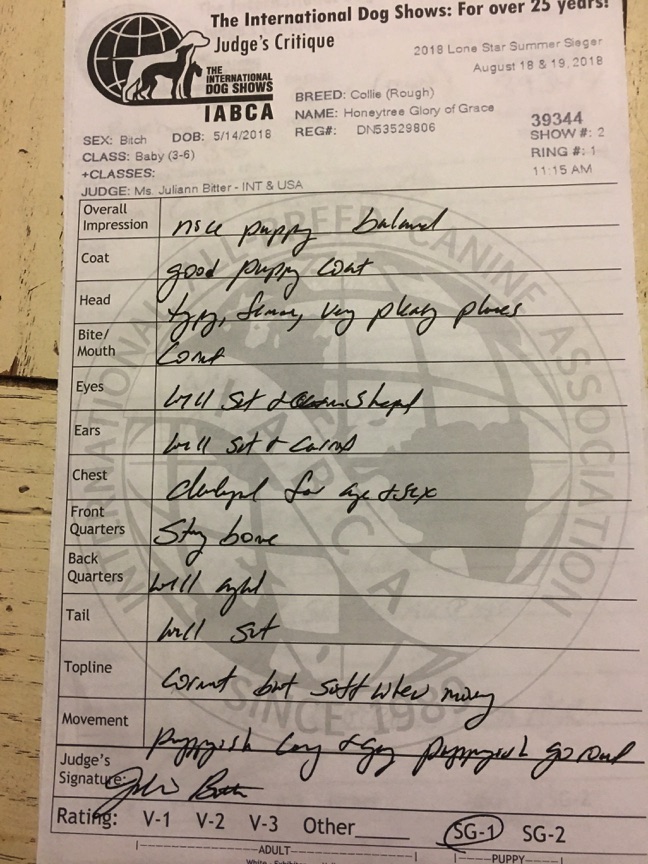 The International Dog Shows: For over 25 years!
Judge's Critique
THE INTERNATIONAL DOG SHOWS
IABCA
2018 Lone Star Summer Sieger
August 18 & 19, 2018
BREED: Collie (Rough)
NAME: Honeytree Glory of Grace
39344
SEX: Bitch DOB: 5/14/2018 REG#: DN53529806 SHOW #: 2
CLASS: Baby (3-6) RING #: 1
+CLASSES: 11:15 AM
JUDGE: Ms. Juliann Bitter - INT & USA
Overall Impression nice puppy balanced
Coat good puppy coat
Head typy, femme, very pleasing planes
Bite/Mouth Correct
Eyes well set & shaped
Ears well set & carried
Chest developed for age & sex
Front Quarters Strong bone
Back Quarters well angled
Tail well set
Topline correct but soft when moving
Movement puppyish coming & going puppyish go round
Judge's Signature:
Rating: V-1 V-2 V-3 Other SG-1 SG-2
ADULT PUPPY
INTERNATIONAL ALL BREED CANINE ASSOCIATION
IABCA
SINCE